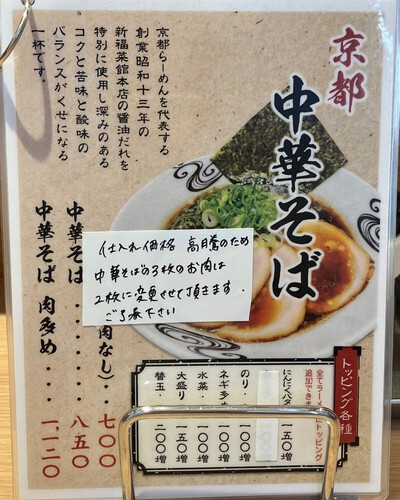 京都
中華そば
京都らーめんを代表する
創業昭和十三年の
新福菜館本店の醤油だれを
特別に使用し深みのある
コクと苦味と酸味の
バランスがくせになる
一杯です。
仕入れ価格 高騰のため
中華そばの3枚のお肉は
2枚に変更させて頂きます.
ご了承下さい
肉なし)・・七〇〇
中華そば・・・・・八五〇
中華そば 肉多め・・一、一二〇
トッピング各種
全てラーメ
トッピング
追加できま
にんにくバタ
一五〇増
のり・
一〇〇増
ネギ多め
一〇〇増
水菜・・一〇〇増
大盛り・一五〇増
替玉・・二〇〇増